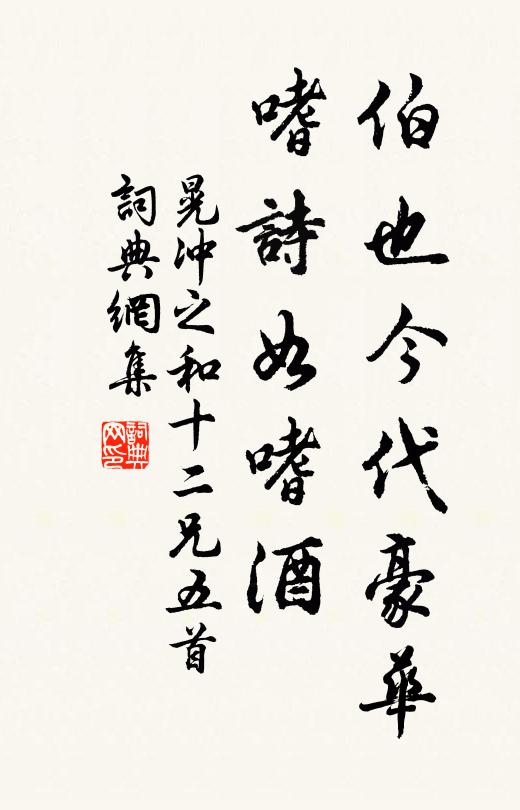 伯也今代豪華
嗜詩如嗜酒
晃沖之和十二兄五首
詞典網集
詞典
网印